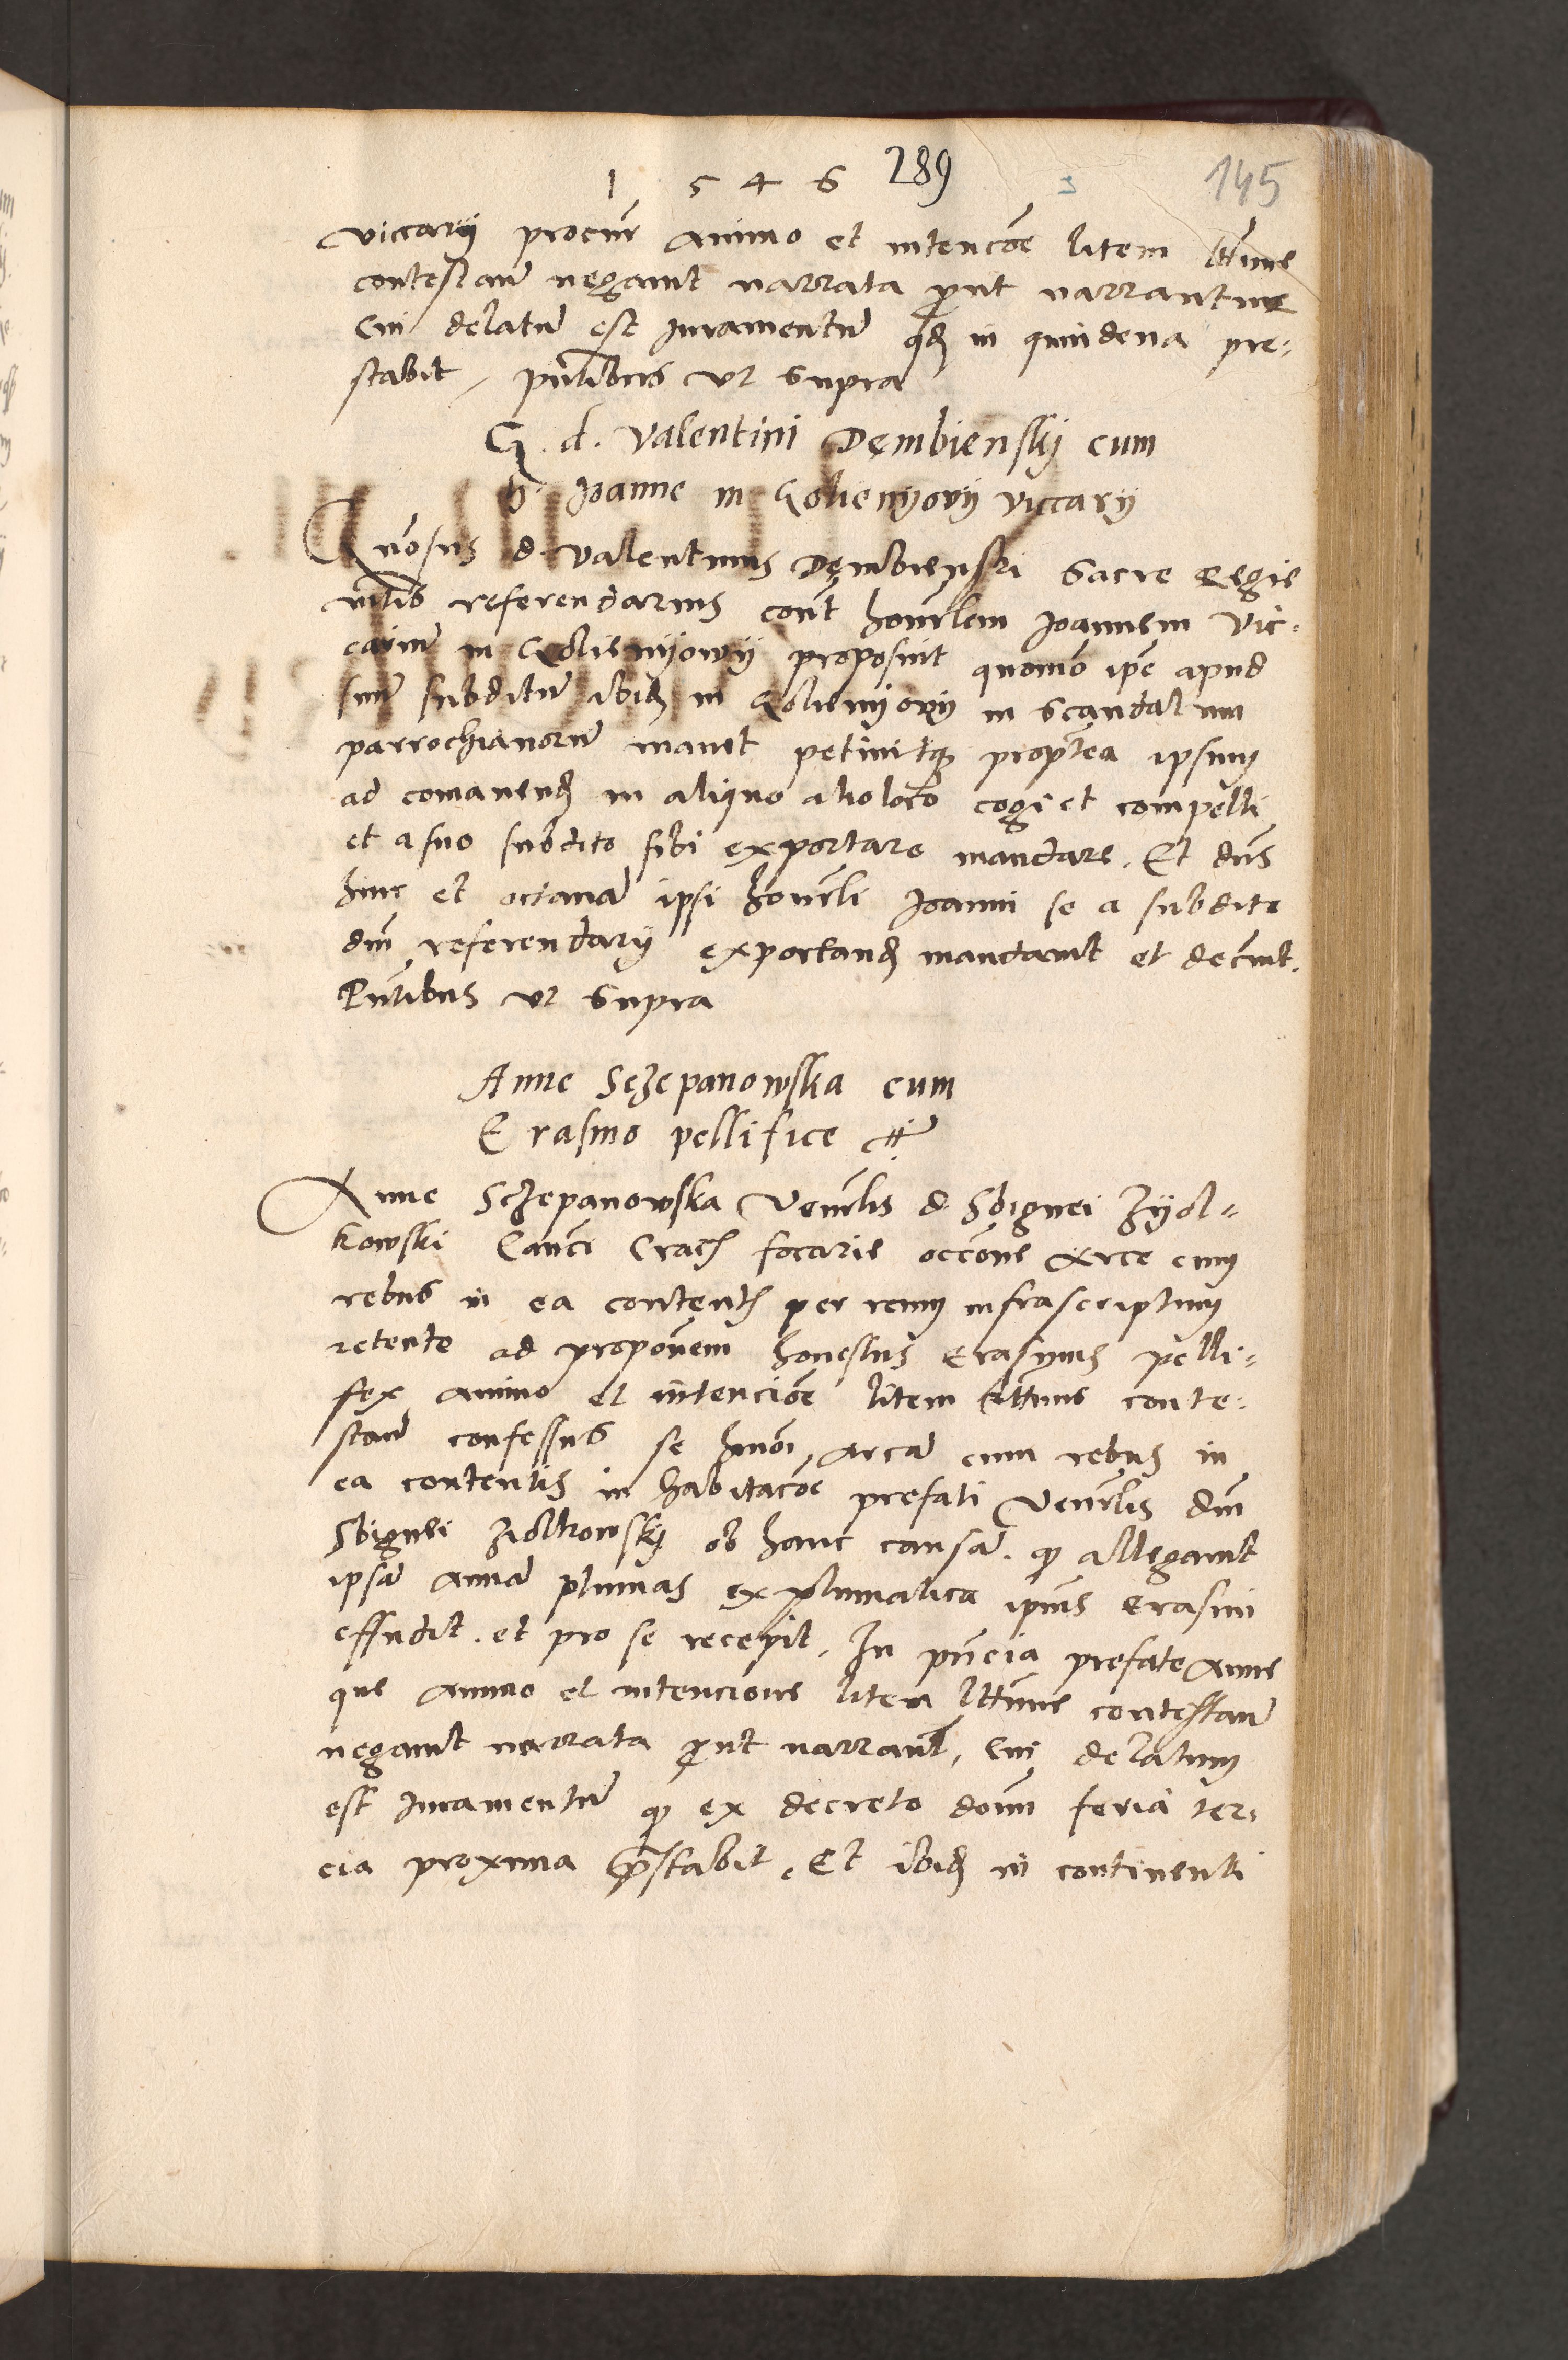 1 5 4 6 289 145
viccarij procur̄ animo et intencōe litem lttīme
contestan̄ negavit narrata prout narrantur
Cui delatū est Juramentū qd̄ in quindena pre-
stabit, pn̄tibus vt Supra
G. d. Valentini Dembienskj cum
h. Joanne in Goliemyowy viccary
Gn̄osus d. Valentinus Dembienski Sacre Regie
mtis referendarius cont̄ hon̄rlem Joannem Vic-
cariū in Goliemyowy proposuit quomō ipē apud
suū subditū ibid̄ in Goliemyowy in Scandalum
parrochianorū manet petivitq3 propterea ipsum
ad comanend̄ in aliquo alio loco cogi et compelli
et a suo subdito sibi exportare mandare. Et dn̄s
hinc et octavā ipsi hon̄rli Joanni se a subdito
dn̄i referendarij exportand̄ mandavit et decrevit.
Pn̄tibus vt Supra
Anne Sczepanowska cum
Erasmo pellifice
Anne Sczepanowska Ven̄rlis d. Sbignei Zyol-
kowski Canci Crac̄ focarie occōne arce cum
rebus in ea content̄ per reum infrascriptum
retente ad propōnem honestus Erasmus pelli-
fex animo et intenciōe litem lttīme conte-
stan̄ confessus se hmōi arcā cum rebus in
ea contentis in habitacōe prefati Ven̄rlis dn̄i
Sbignei Ziolkowskij ob hanc causā. q allegavit
ipsā annā plumas ex plumatica ipīus Erasmi
effudit. et pro se recepit. In pn̄cia prefate Anne
que animo et intencione litem lttīme contestan̄
negavit narrata prout narrant̄, Cui delatum
est Juramentū q ex decreto domī feria ter-
cia proxima prestabit. Et ibid̄ in continenti